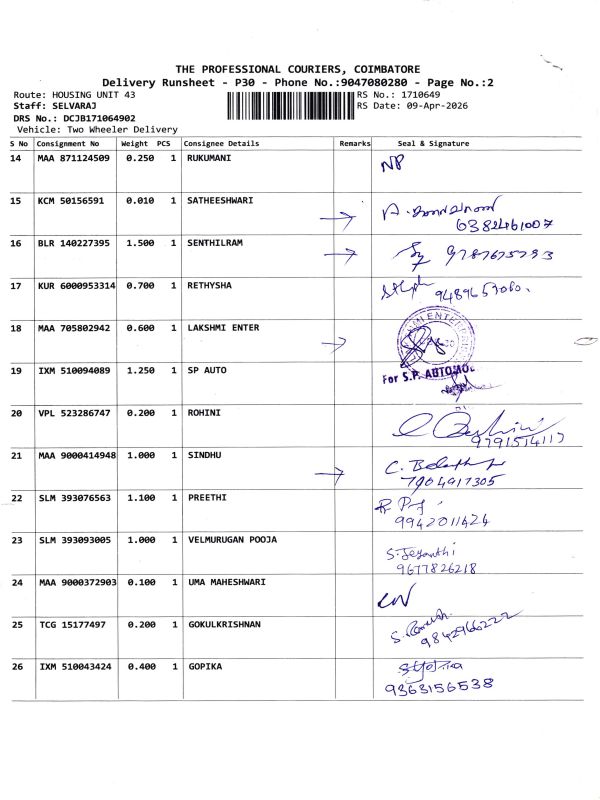 THE PROFESSIONAL COURIERS, COIMBATORE
Delivery Runsheet - P30 - Phone No.:9047080280 - Page No.:2
Route: HOUSING UNIT 43 RS No.: 1710649
Staff: SELVARAJ RS Date: 09-Apr-2026
DRS No.: DCJB171064902
Vehicle: Two Wheeler Delivery
S No Consignment No Weight PCS Consignee Details Remarks Seal & Signature
14 MAA 871124509 0.250 1 RUKUMANI
15 KCM 50156591 0.010 1 SATHEESHWARI
6382461007
16 BLR 140227395 1.500 1 SENTHILRAM 9787675793
17 KUR 6000953314 0.700 1 RETHYSHA
9489653060.
18 MAA 705802942 0.600 1 LAKSHMI ENTER
19 IXM 510094089 1.250 1 SP AUTO For S.P. AUTOMO
20 VPL 523286747 0.200 1 ROHINI
9791514117
21 MAA 9000414948 1.000 1 SINDHU
7904917305
22 SLM 393076563 1.100 1 PREETHI
9942011424
23 SLM 393093005 1.000 1 VELMURUGAN POOJA S. Jeyanthi
9677826218
24 MAA 9000372903 0.100 1 UMA MAHESHWARI
25 TCG 15177497 0.200 1 GOKULKRISHNAN
9842966222
26 IXM 510043424 0.400 1 GOPIKA
9363156538